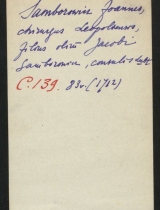 Samborowicz Joannes,
chirurgus Leopoliensis,
filius olim Jacobi
Samborowicz, consulis
C. 139. 83v. (1712)